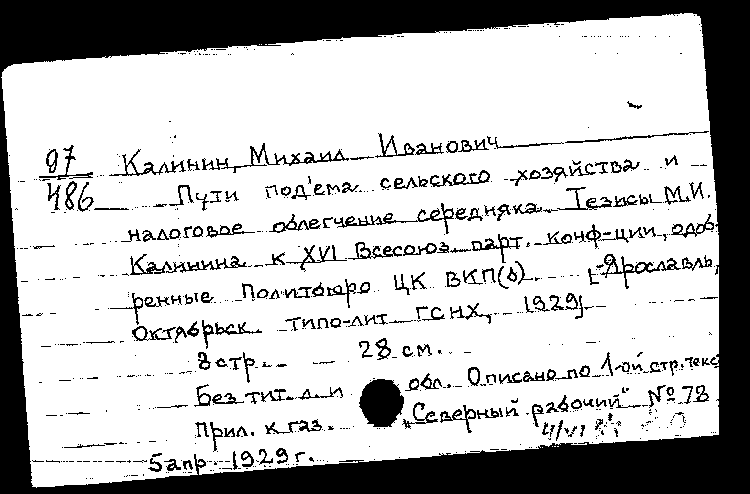 97 Калинин, Михаил Иванович
486 Пути под'ема сельского хозяйства и
налоговое облегчение середняка. Тезисы М.И.
Калинина к XVI Всесоюз. парт. конф-ции, одоб-
ренные Политбюро ЦК ВКП(б). [Ярославль,
Октябрьск. типо-лит ГСНХ, 1929]
8 стр. 28 см.
Без тит. л. и обл. Описано по 1-ой стр. текс
Прил. к газ. "Северный рабочий" № 78
5 апр 1929 г. 4/VI